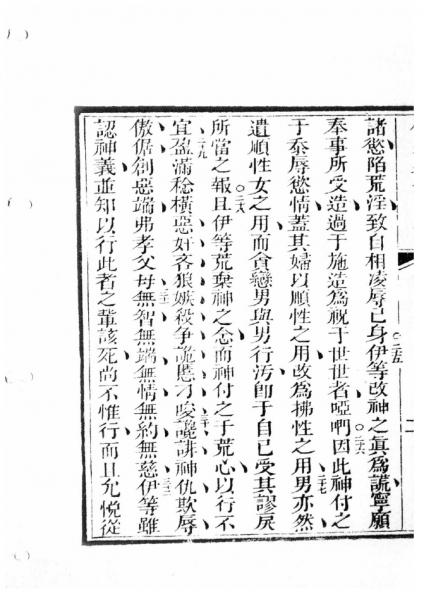 諸慾陷荒淫致自相凌辱己身伊等改神之眞為謊寧願
奉事所受造過于施造為視于世世者啞們因此神付之
于忝辱慾情蓋其婦以順性之用改為拂性之用男亦然
遺順性女之用而貪戀男與男行污卽于自已受其謬戾
所當之報且伊等荒棄神之念而神付之于荒心以行不
宜盈滿稔橫惡奸吝狠嫉殺爭詭慝刁唆讒誹神仇欺辱
傲倨創惡端弗孝父母無智無端無情無約無慈伊等雖
認神義並知以行此者之輩該死尚不惟行而且允悅從